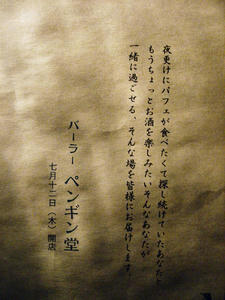 夜更けにパフェが食べたくて探し続けていたあなたと
もうちょっとお酒を楽しみたいそんなあなたが
一緒に過ごせる、そんな場を皆様にお届けします。
バーラー ペンギン堂
七月十二日（木）開店